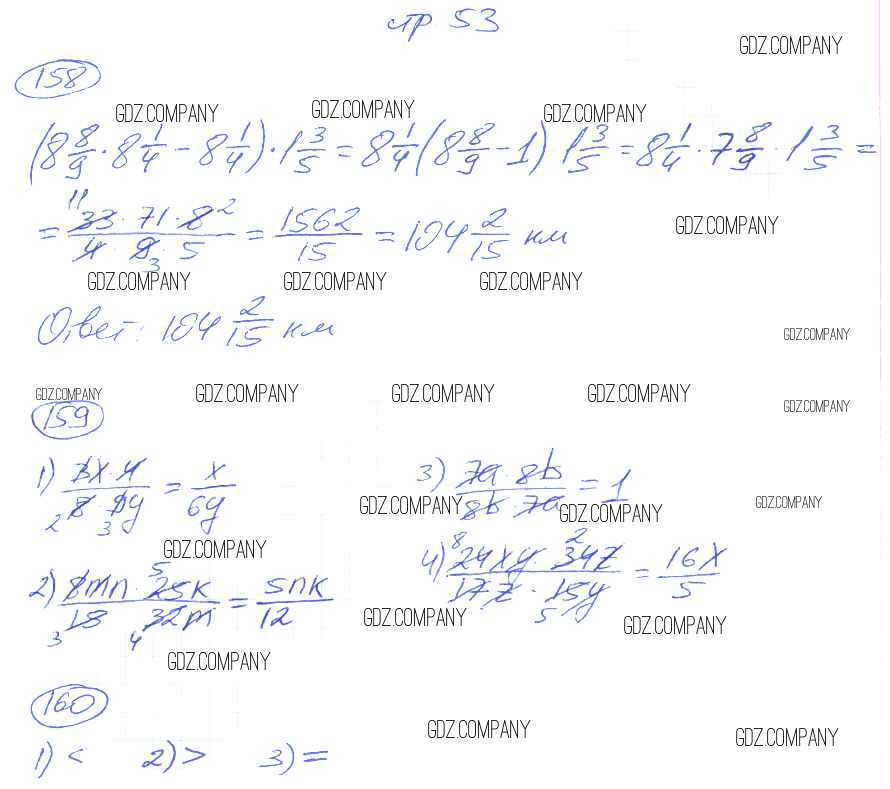 стр 53
GDZ.COMPANY
158
GDZ.COMPANY GDZ.COMPANY GDZ.COMPANY
(8 8/9 · 8 1/4 - 8 1/4) · 1 3/5 = 8 1/4 (8 8/9 - 1) · 1 3/5 = 8 1/4 · 7 8/9 · 1 3/5 =
11 2
= 33 · 71 · 8 / 4 · 9 · 5 = 1562/15 = 104 2/15 км GDZ.COMPANY
3
GDZ.COMPANY GDZ.COMPANY GDZ.COMPANY
Ответ: 104 2/15 км GDZ.COMPANY
GDZ.COMPANY GDZ.COMPANY GDZ.COMPANY GDZ.COMPANY
159 GDZ.COMPANY
1) 3x · 4 / 8 · 9y = x/6y 3) 7a · 8b / 8b · 7a = 1
2 3
GDZ.COMPANY GDZ.COMPANY GDZ.COMPANY
GDZ.COMPANY
5 8 2
2) 8mn · 25k / 18 32m = 5nk/12 4) 24xy · 34z / 17z · 15y = 16x/5
3 4 5
GDZ.COMPANY GDZ.COMPANY
GDZ.COMPANY
160
GDZ.COMPANY GDZ.COMPANY
1) < 2) > 3) =